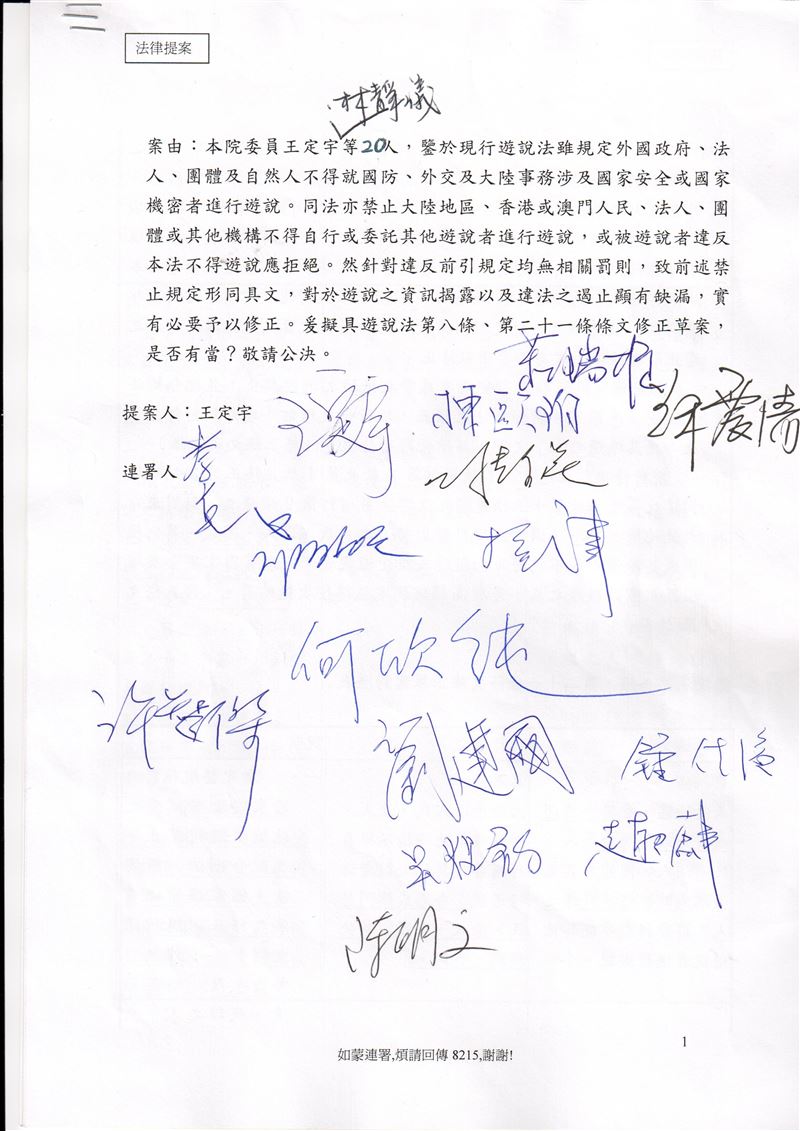 法律提案
林靜儀
案由：本院委員王定宇等20人，鑒於現行遊說法雖規定外國政府、法
人、團體及自然人不得就國防、外交及大陸事務涉及國家安全或國家
機密者進行遊說。同法亦禁止大陸地區、香港或澳門人民、法人、團
體或其他機構不得自行或委託其他遊說者進行遊說，或被遊說者違反
本法不得遊說應拒絕。然針對違反前引規定均無相關罰則，致前述禁
止規定形同具文，對於遊說之資訊揭露以及違法之遏止顯有缺漏，實
有必要予以修正。爰擬具遊說法第八條、第二十一條條文修正草案，
是否有當？敬請公決。
提案人：王定宇
連署人
何欣純
許智傑
劉建國
鍾佳濱
趙天麟
陳明文
1
如蒙連署,煩請回傳 8215,謝謝!